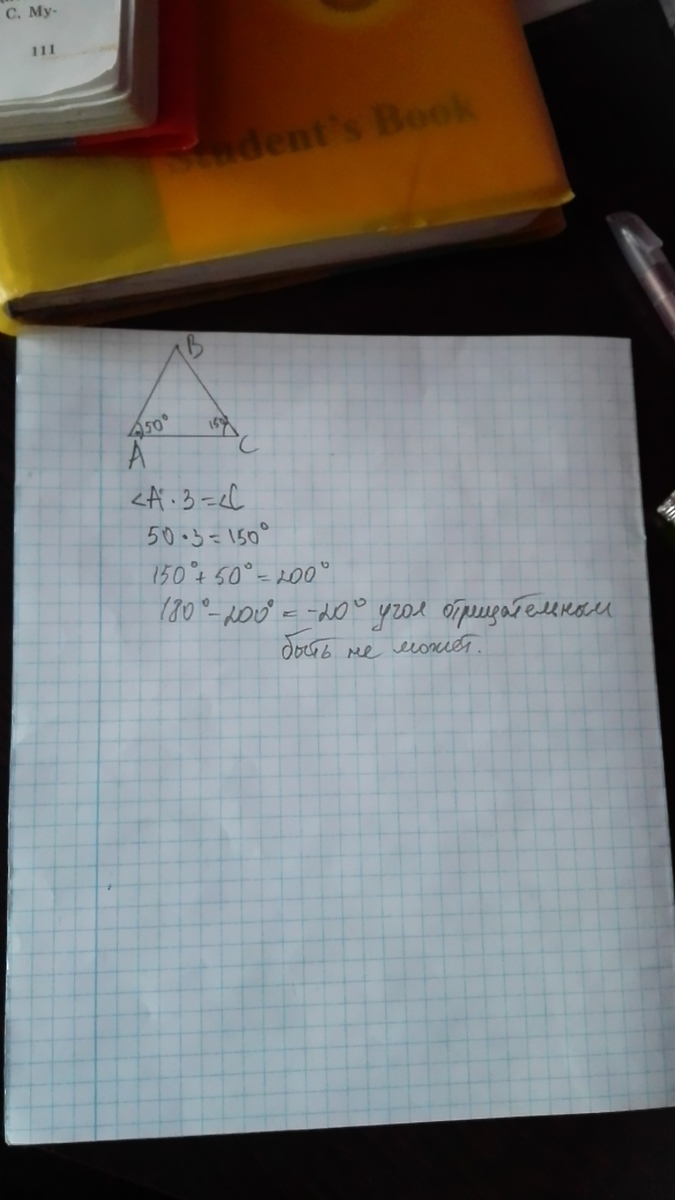 С. Му-
111
Student's Book
B
50°
150
A
C
∠A · 3 = ∠C
50 · 3 = 150°
150° + 50° = 200°
180° - 200° = -20° угол отрицательным
быть не может.